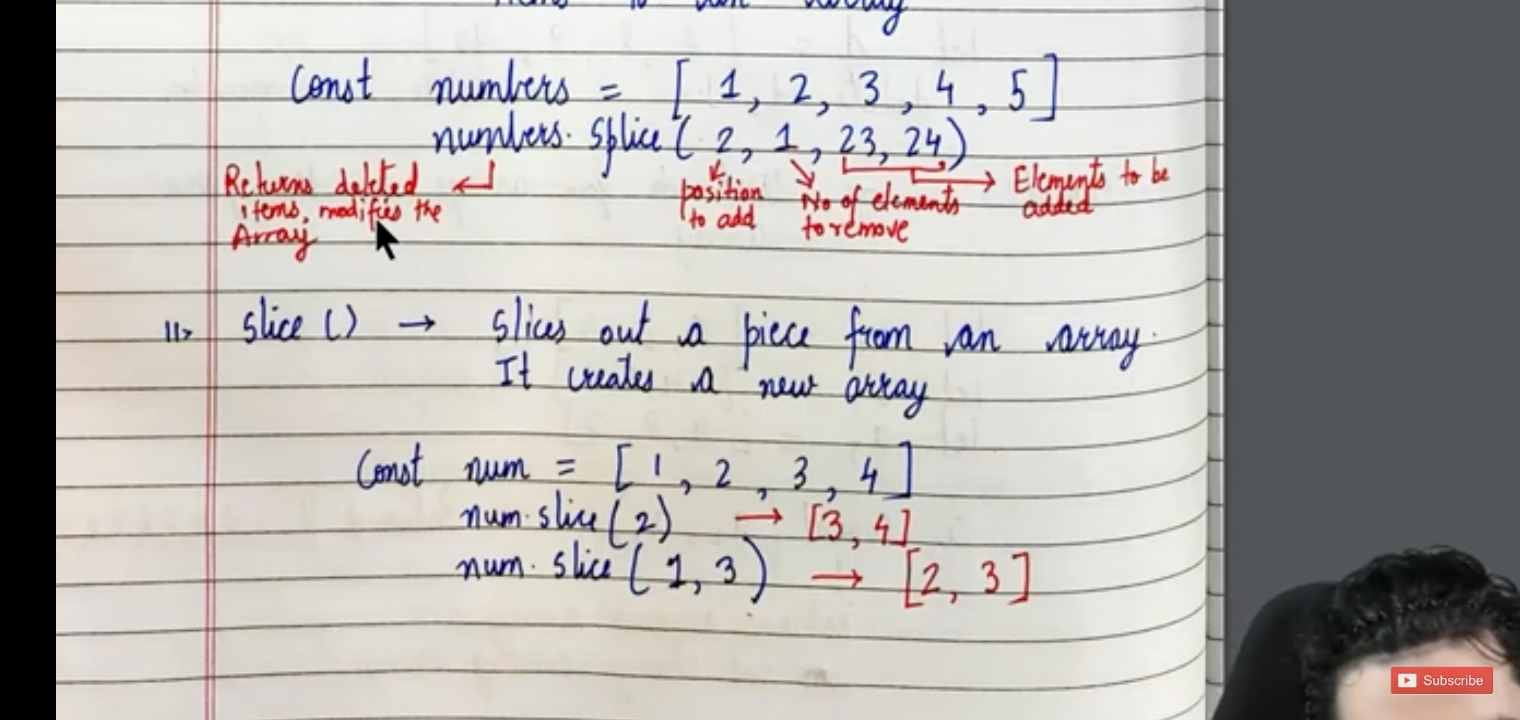 Const numbers = [ 1, 2, 3, 4, 5 ]
numbers. splice ( 2, 1, 23, 24 )
Returns deleted items, modifies the Array
position to add
No of elements to remove
Elements to be added
11> slice () → slices out a piece from an array.
It creates a new array
Const num = [ 1, 2, 3, 4 ]
num. slice ( 2 ) → [3, 4]
num. slice ( 1, 3 ) → [2, 3]
Subscribe